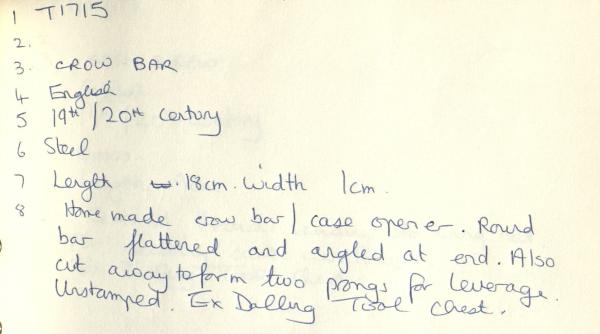 1 T1715
2.
3. CROW BAR
4 English
5 19th/20th century
6 Steel
7 Length 18cm. Width 1cm.
8 Home made crow bar/case opener. Round
bar flattened and angled at end. Also
cut away to form two prongs for leverage.
Unstamped. Ex Dalling Tool Chest.